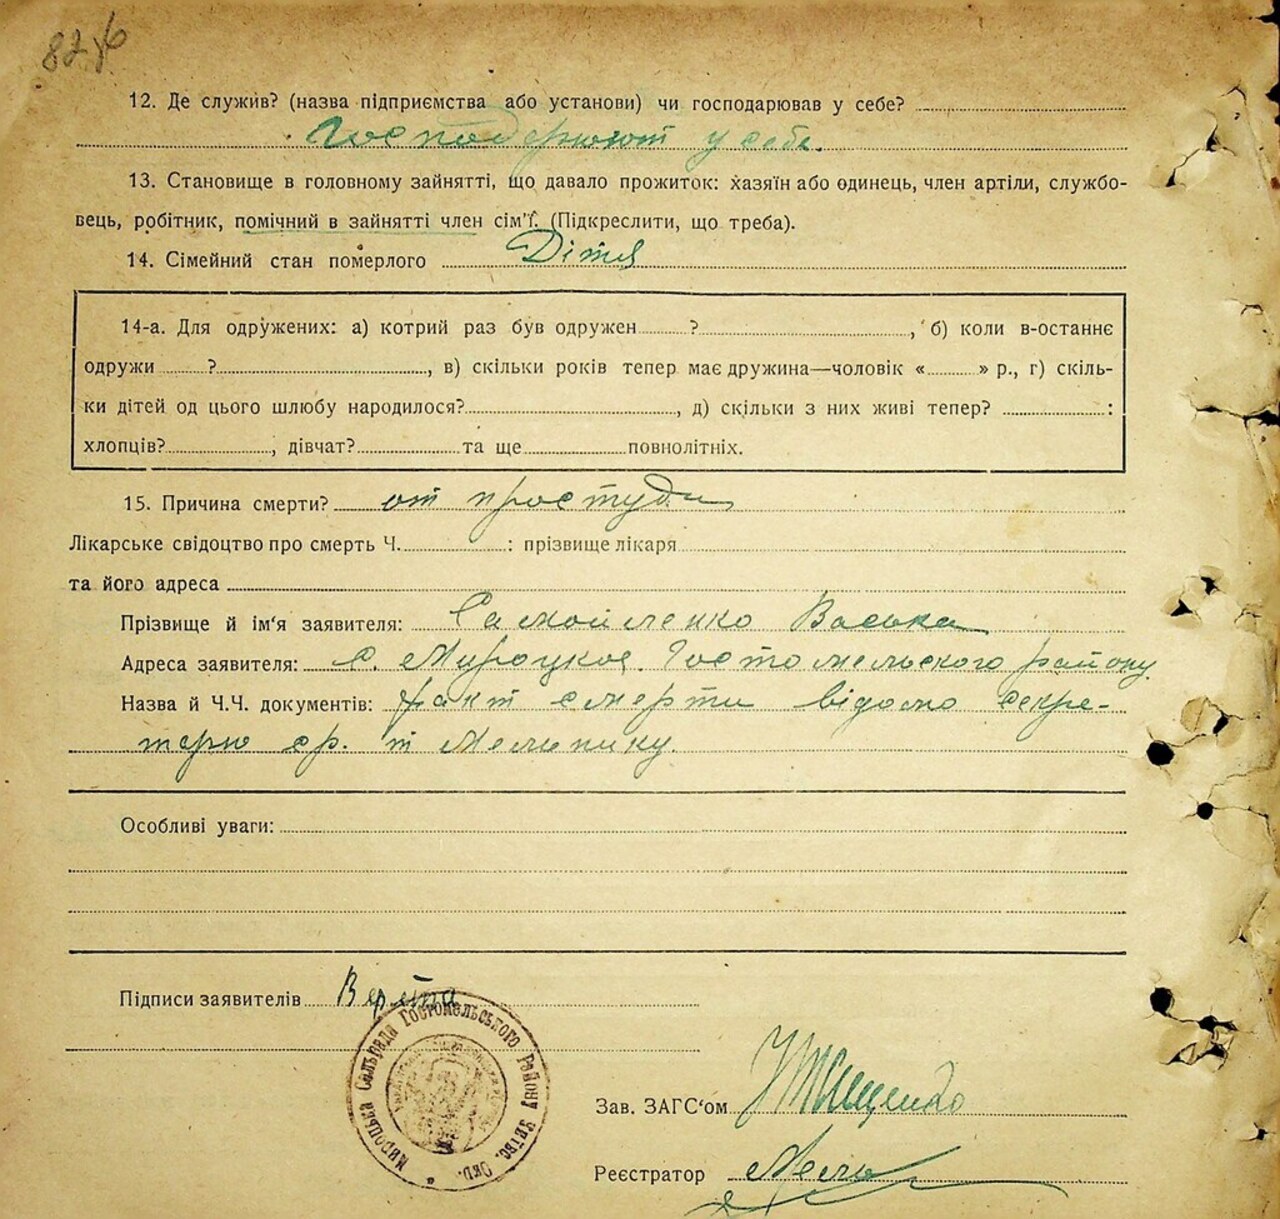 82
12. Де служив? (назва підприємства або установи) чи господарював у себе?
Господрюют у себе.
13. Становище в головному зайнятті, що давало прожиток: хазяїн або одинець, член артіли, службо-
вець, робітник, помічний в зайнятті член сім'ї. (Підкреслити, що треба).
14. Сімейний стан померлого Дітя
14-а. Для одружених: а) котрий раз був одружен ? , б) коли в-останнє
одружи ? , в) скільки років тепер має дружина—чоловік « » р., г) скіль-
ки дітей од цього шлюбу народилося? , д) скільки з них живі тепер? :
хлопців? , дівчат? та ще повнолітніх.
15. Причина смерти? от простуди
Лікарське свідоцтво про смерть Ч. : прізвище лікаря
та його адреса
Прізвище й ім'я заявителя: Самойленко Васька
Адреса заявителя: с. Мироцкое Гостомельского району.
Назва й Ч.Ч. документів: факт смерти відомо секре-
тарю ср. т Мельнику.
Особливі уваги:
Підписи заявителів
Мироцька Сільрада Гостомельського Району Київс. Окр.
Зав. ЗАГС'ом
Реєстратор